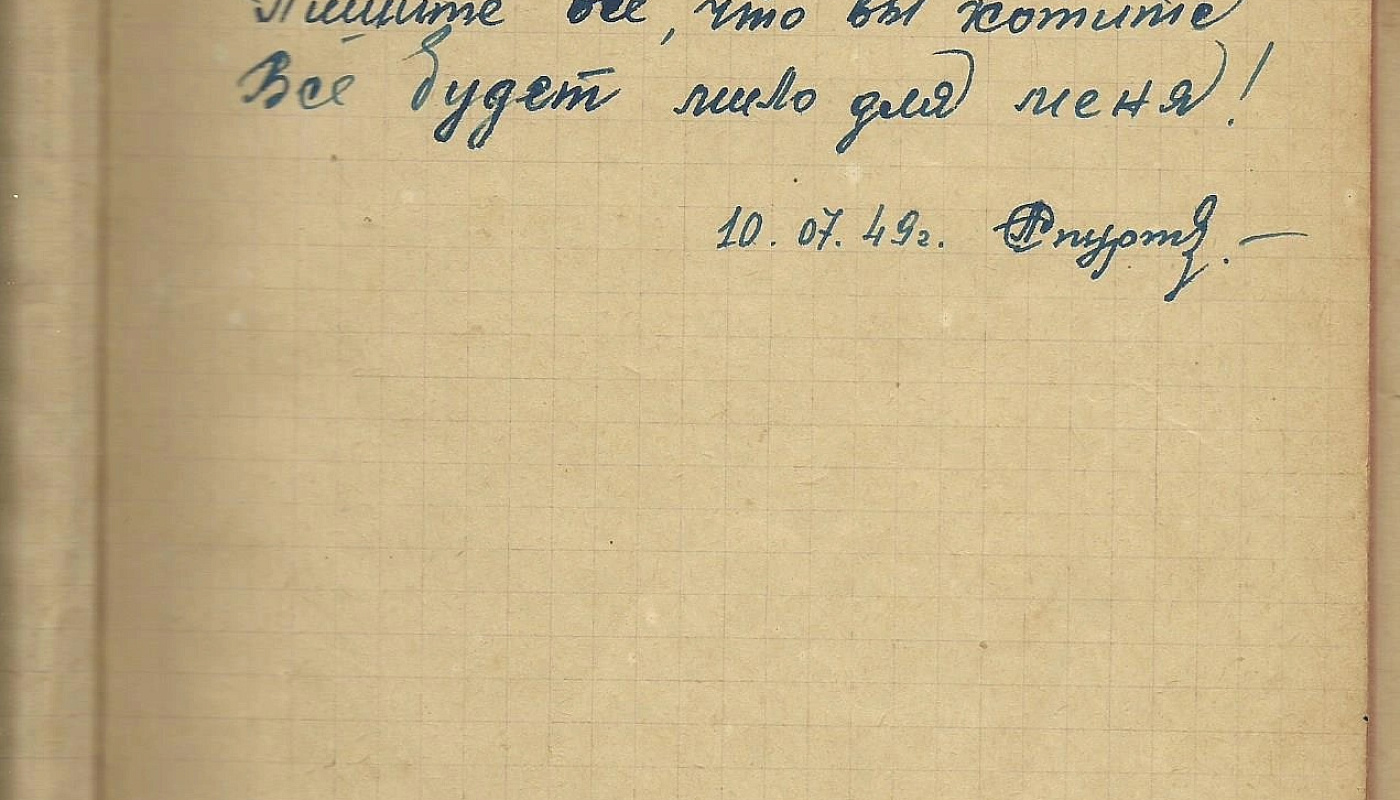 Пишите все, что вы хотите
Всё будет мило для меня!
10. 07. 49г.